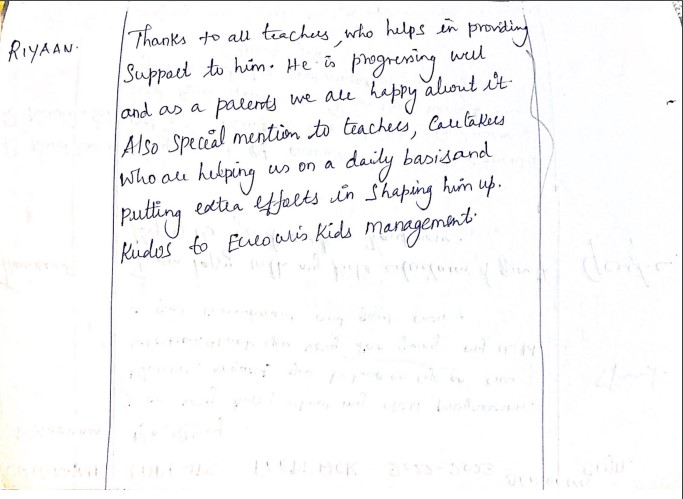 RIYAAN.
Thanks to all teachers, who helps in providing
Support to him. He is progressing well
and as a parents we are happy about it.
Also special mention to teachers, Caretakers
who are helping us on a daily basis and
putting extra efforts in shaping him up.
Kudos to Kids Management.